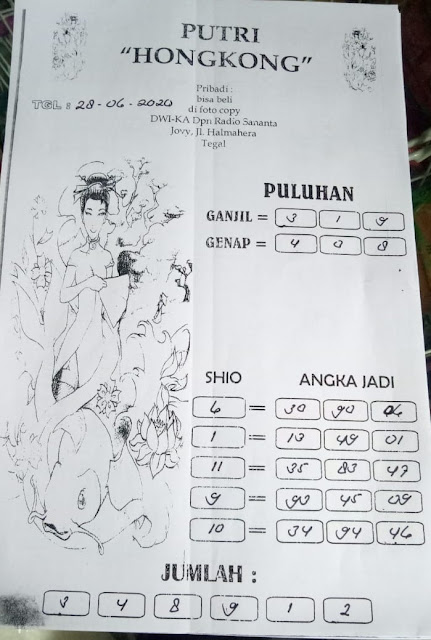 PUTRI
"HONGKONG"
Pribadi :
bisa beli
di foto copy
DWI-KA Dpn Radio Sananta
Jovy, Jl. Halmahera
Tegal
TGL : 28-06-2020
PULUHAN
GANJIL = 3 1 9
GENAP = 4 0 8
SHIO ANGKA JADI
6 = 30 90 06
1 = 13 49 01
11 = 35 83 47
9 = 93 45 09
10 = 34 94 46
JUMLAH :
3 4 8 9 1 2